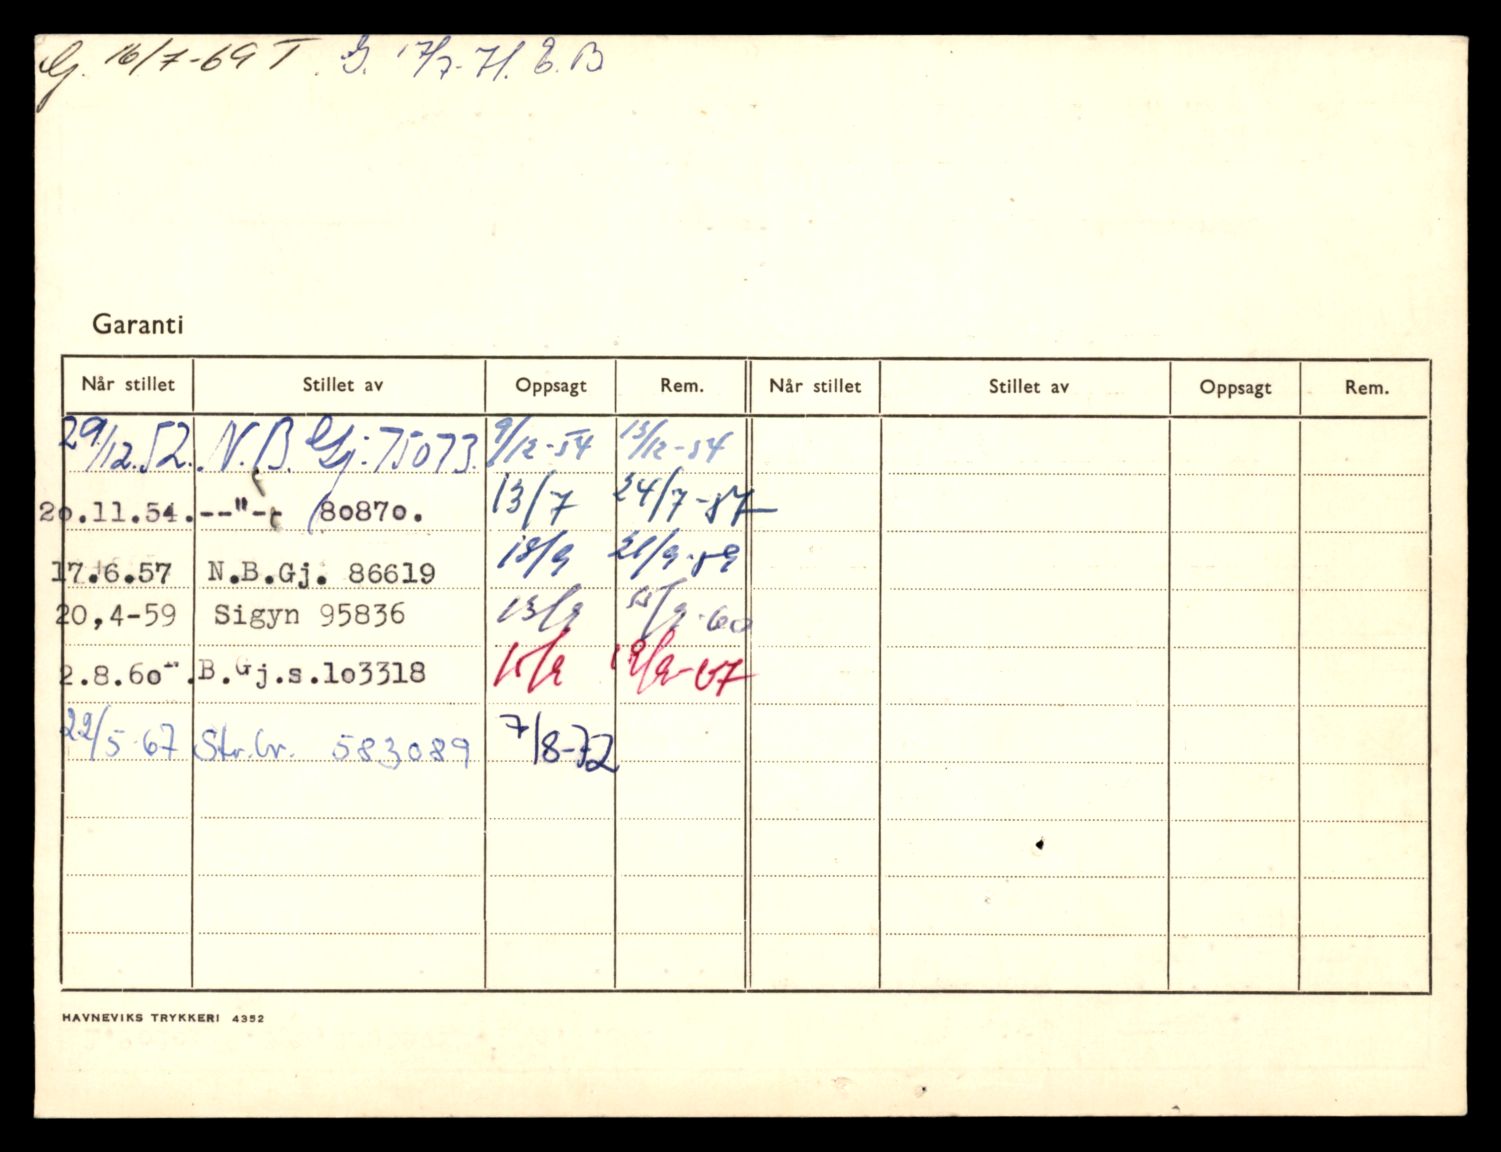 G. 16/7-69 T. G. 17/7-71. E.B
Garanti
Når stillet Stillet av Oppsagt Rem. Når stillet Stillet av Oppsagt Rem.
29/12.52. N.B.Gj. 75073. 9/12-54 13/12-54
20.11.54. --"-- 80870. 13/7 24/7-57
17.6.57 N.B.Gj. 86619 18/9 21/9-59
20,4-59 Sigyn 95836 13/9 /9-60
2.8.60 .B.Gj.s.103318 15/9 19/9-67
22/5 67 Str.br. 583089 7/8-72
HAVNEVIKS TRYKKERI 4352